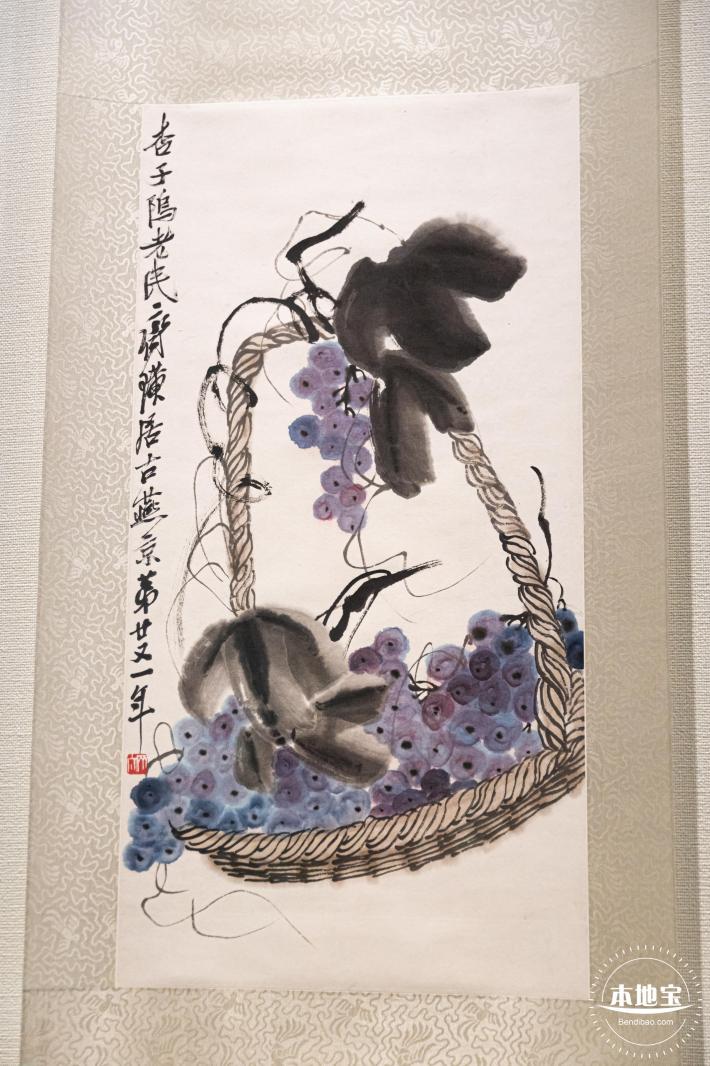 杏子隖老民齐璜居古燕京第廿又一年
本地宝
Bendibao.com